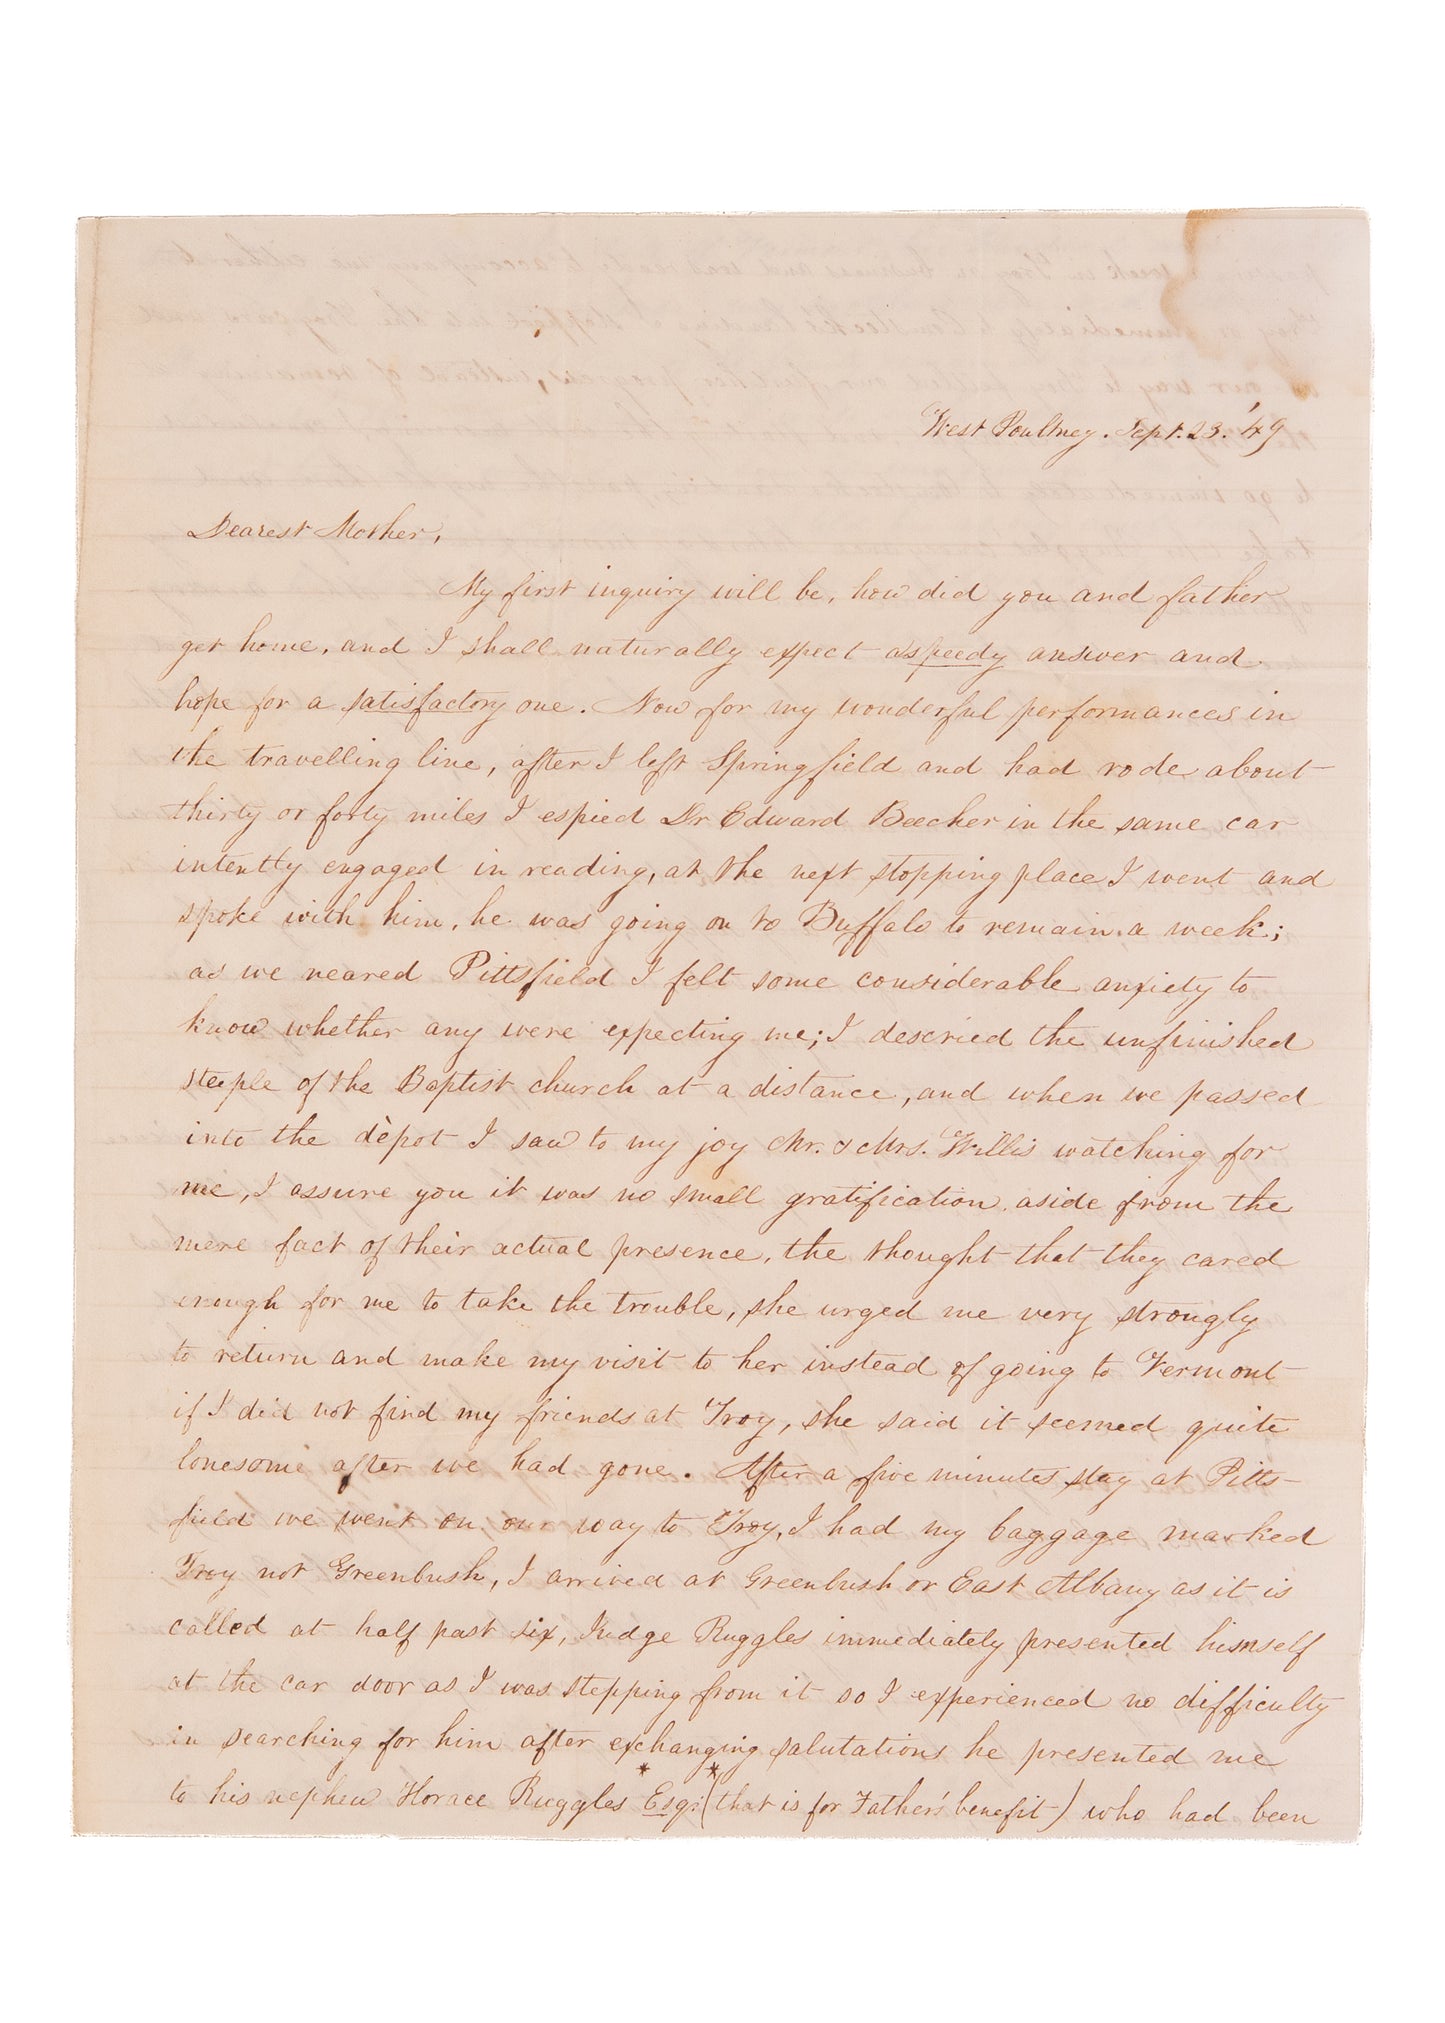 West Poultney. Sept. 23. '49
Dearest Mother,
My first inquiry will be, how did you and father
get home, and I shall naturally expect a speedy answer and
hope for a satisfactory one. Now for my wonderful performances in
the travelling line, after I left Springfield and had rode about
thirty or forty miles I espied Dr Edward Beecher in the same car
intently engaged in reading, at the next stopping place I went and
spoke with him, he was going on to Buffalo to remain a week;
as we neared Pittsfield I felt some considerable anxiety to
know whether any were expecting me; I descried the unfinished
steeple of the Baptist church at a distance, and when we passed
into the dèpot I saw to my joy Mr. & Mrs. Willis watching for
me, I assure you it was no small gratification aside from the
mere fact of their actual presence, the thought that they cared
enough for me to take the trouble, she urged me very strongly
to return and make my visit to her instead of going to Vermont
if I did not find my friends at Troy, she said it seemed quite
lonesome after we had gone. After a five minutes stay at Pitts-
field we went on our way to Troy, I had my baggage marked
Troy not Greenbush, I arrived at Greenbush or East Albany as it is
called at half past six, Judge Ruggles immediately presented himself
at the car door as I was stepping from it so I experienced no difficulty
in searching for him after exchanging salutations he presented me
to his nephew Horace Ruggles * Esq: * (that is for Father's benefit) who had been